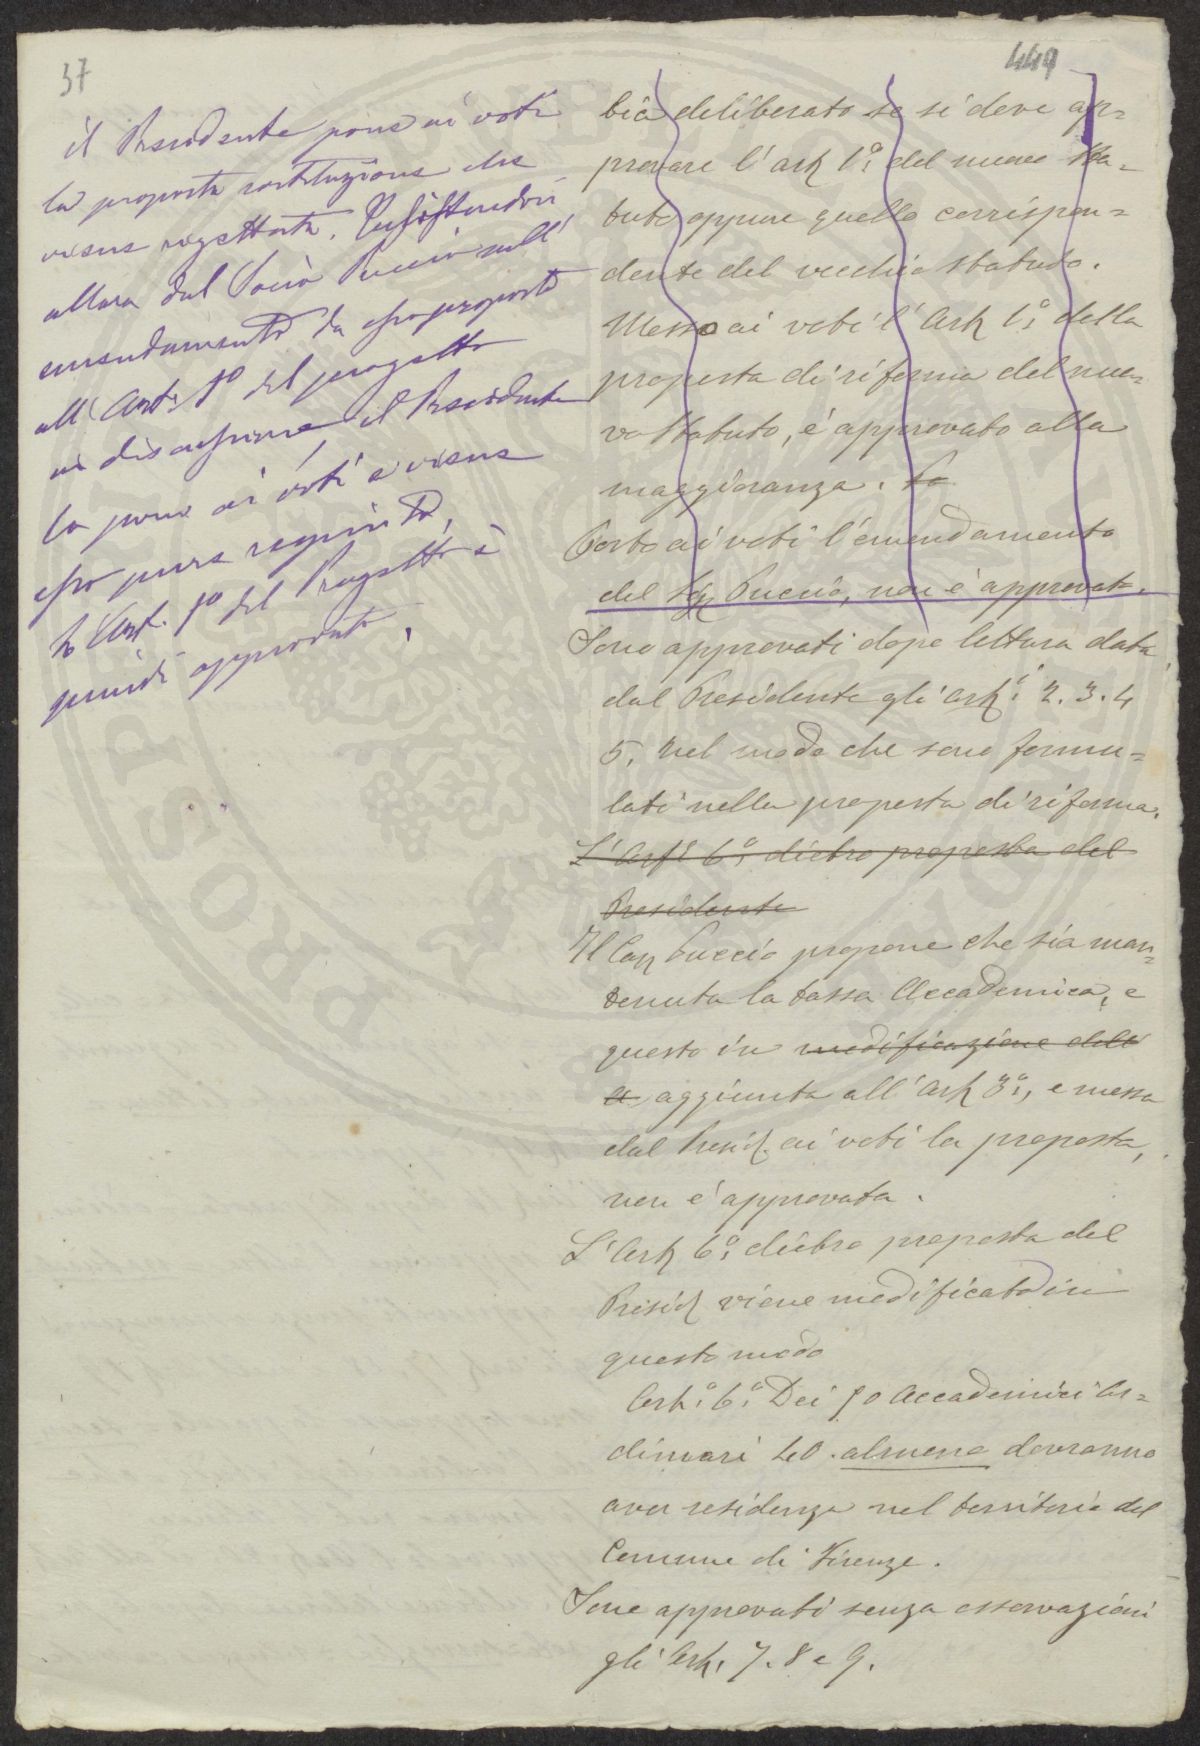 37
449
il Presidente pone ai voti
la proposta sostituzione che
viene rigettata. Insistendosi
allora dal Socio Puccio sull'
emendamento da esso proposto
all'Art. 1º del progetto
in discussione, il Presidente
lo pone ai voti e viene
esso pure respinto,
lo Art. 1º del Progetto è
quindi approvato.
bia deliberato se si deve ap=
provare l'Art. 1º del nuovo Sta=
tuto oppure quello corrispon=
dente del vecchio statuto.
Messo ai voti l'Art. 1º della
proposta di riforma del nuo=
vo Statuto, é approvato alla
maggioranza. Po
Posto ai voti l'emendamento
del Sig. Puccio, non é approvato.
Sono approvati dopo lettura data
dal Presidente gli Art.i 2. 3. 4
5, nel modo che sono formu=
lati nella proposta di riforma.
L'Art. 6º dietro proposta del
Presidente
Il Cav Puccio propone che sia man=
tenuta la tassa Accademica, e
questo in modificazione dell'
a aggiunta all'Art 3º, e messa
dal Presid. ai voti la proposta,
non é approvata.
L'Art 6º dietro proposta del
Presid. viene modificato in
questo modo
Art.º 6º Dei 50 Accademici Or=
dinari 40. almeno dovranno
aver residenza nel territorio del
Comune di Firenze.
Sono approvati senza osservazioni
gli Art. 7. 8 e 9.